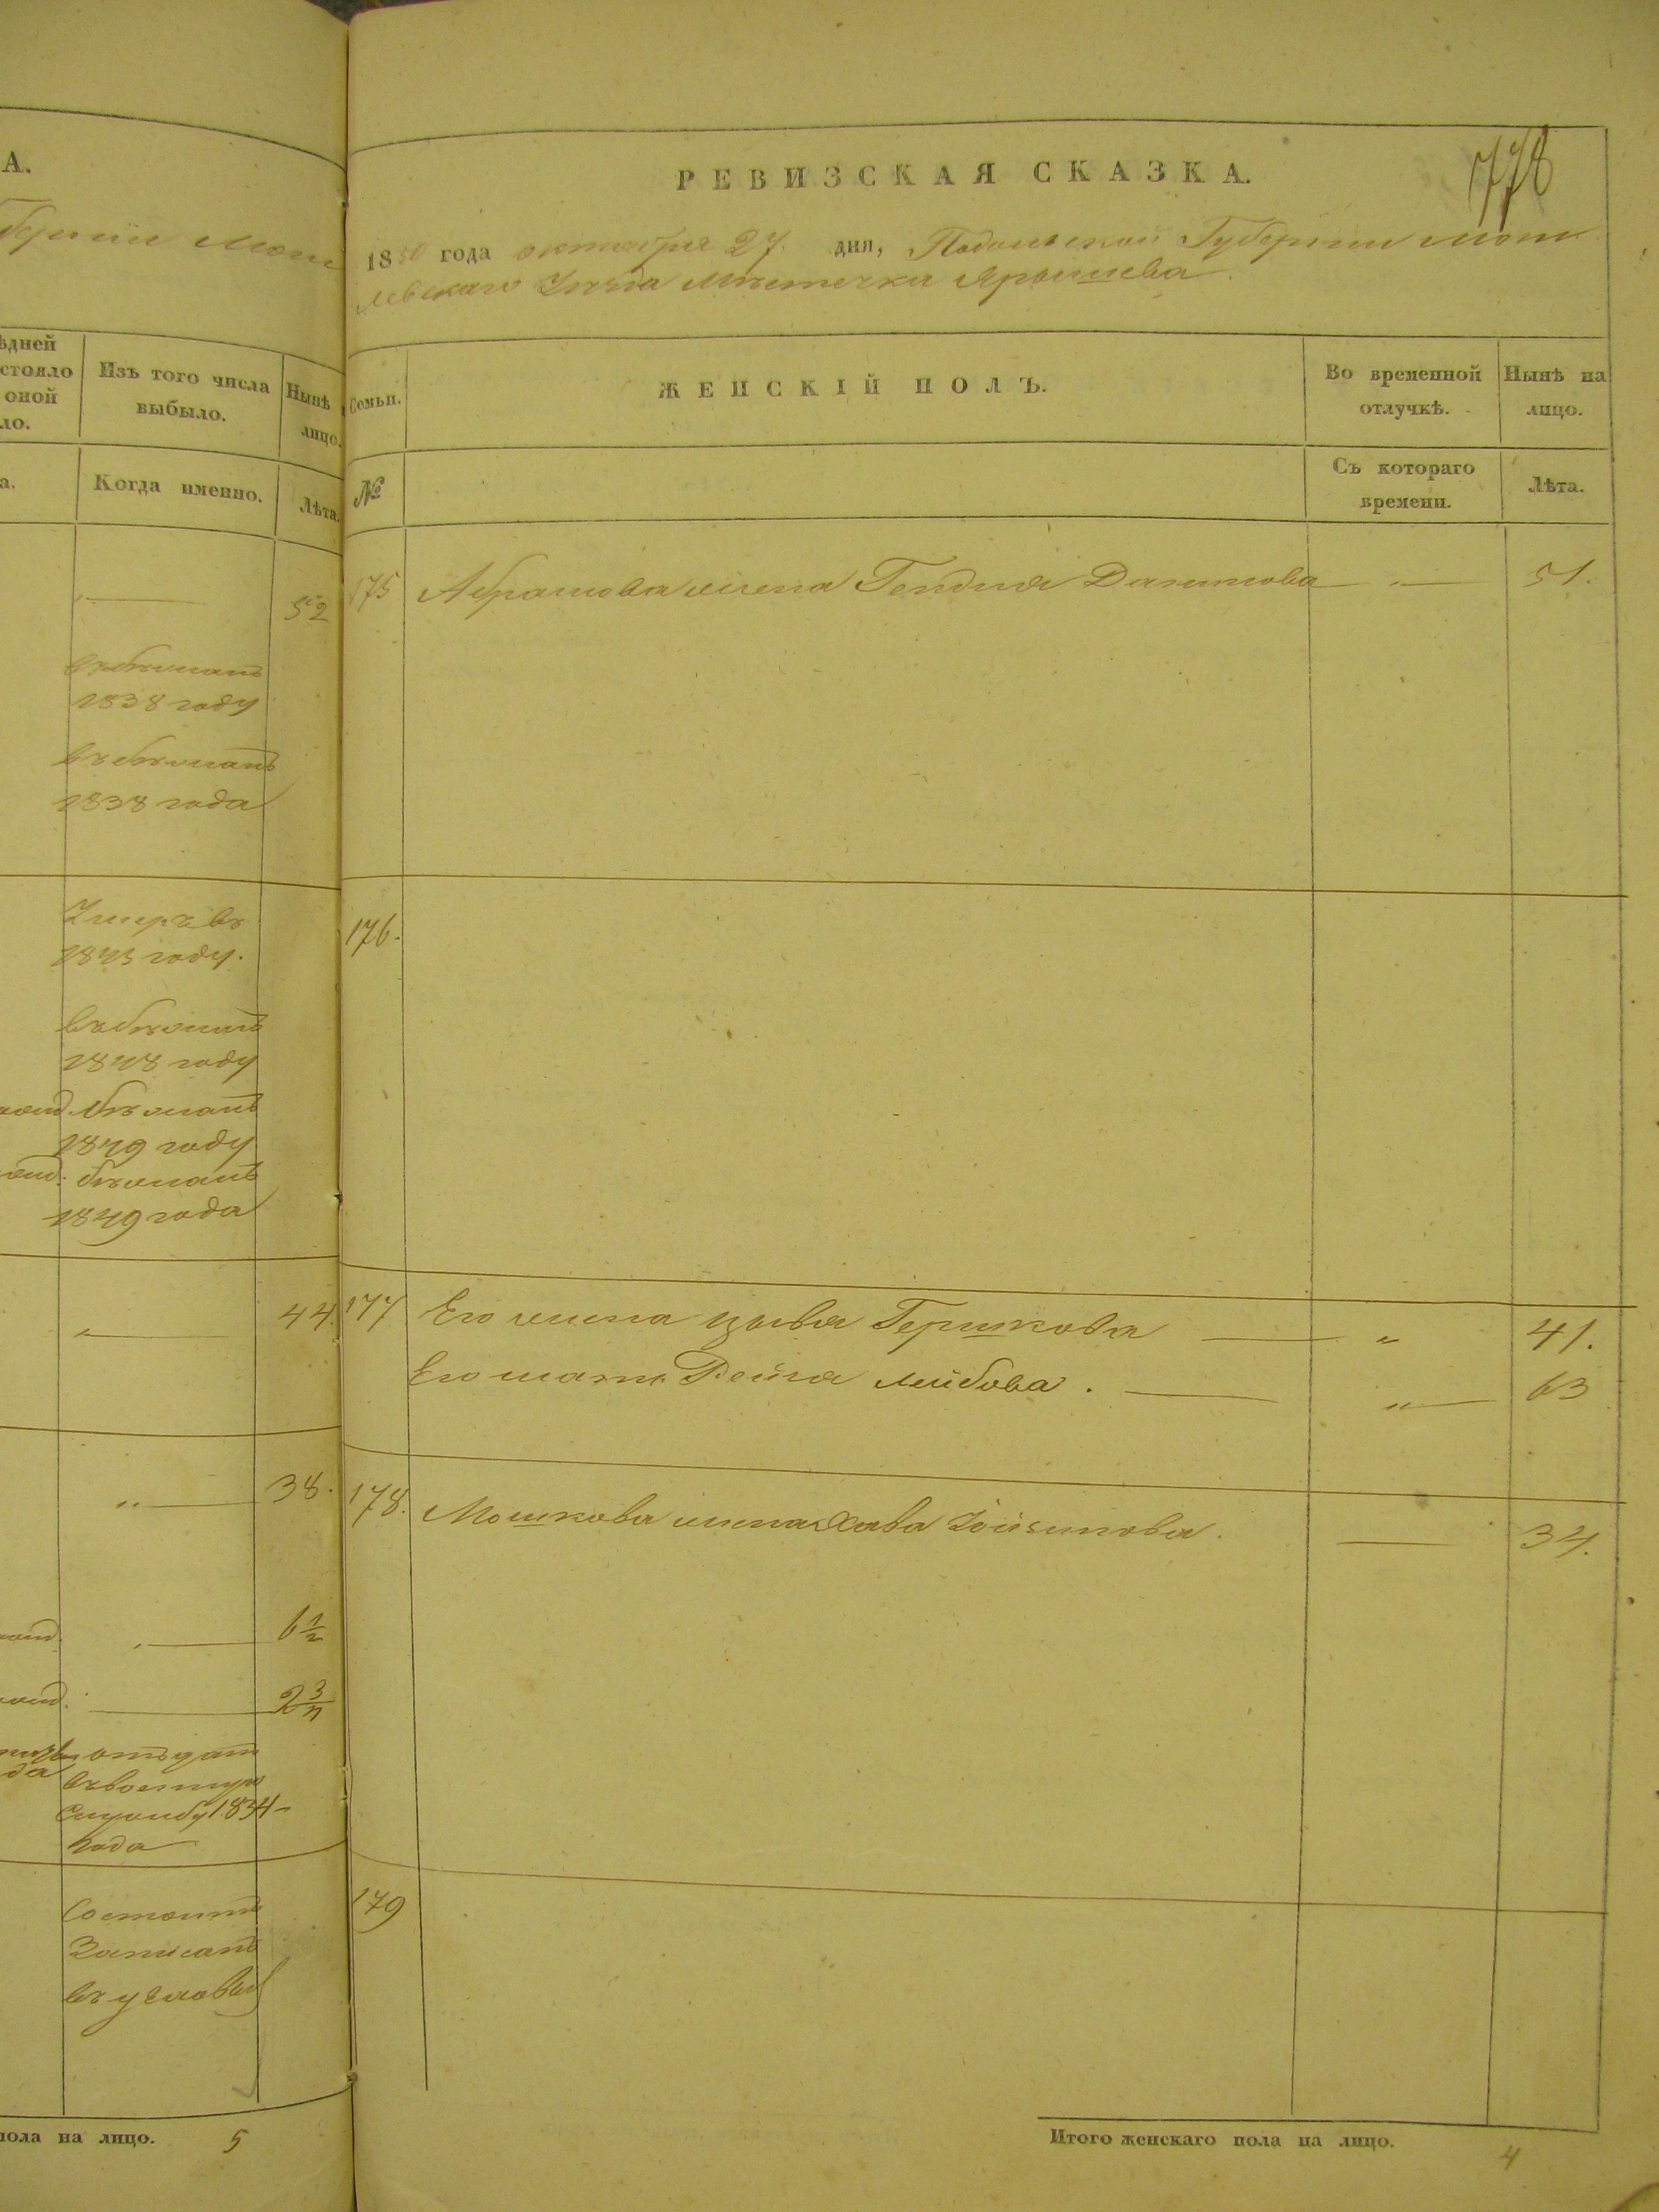 А.
ѣдней
стояло
оной
ло.
Изъ того числа
выбыло.
Нынѣ
лицо.
а.
Когда именно.
Лѣта.
52
въ бѣгахъ
1838 году
въ бѣгахъ
1838 года
Умеръ въ
1843 году.
1848 году
1849 году
1849 года
44.
38.
6 1/2
2 3/4
отъдат
службу 1834-
года
Состоитъ
Записанъ
пола на лицо. 5
778
РЕВИЗСКАЯ СКАЗКА.
1850 года октября 27 дня, Подольской Губерніи Моги
левскаго Уѣзда мѣстечка Ярышева.
Семьи.
ЖЕНСКІЙ ПОЛЪ.
Во временной
отлучкѣ.
Нынѣ на
лицо.
№
Съ котораго
времени.
Лѣта.
175 Абрамова жена Гендля 51.
176.
177 Его жена Цывя Гершкова „ 41.
Его мать Рейзя Лейбова. „ 63
178. Мошкова жена Хава 34.
179
Итого женскаго пола на лицо. 4